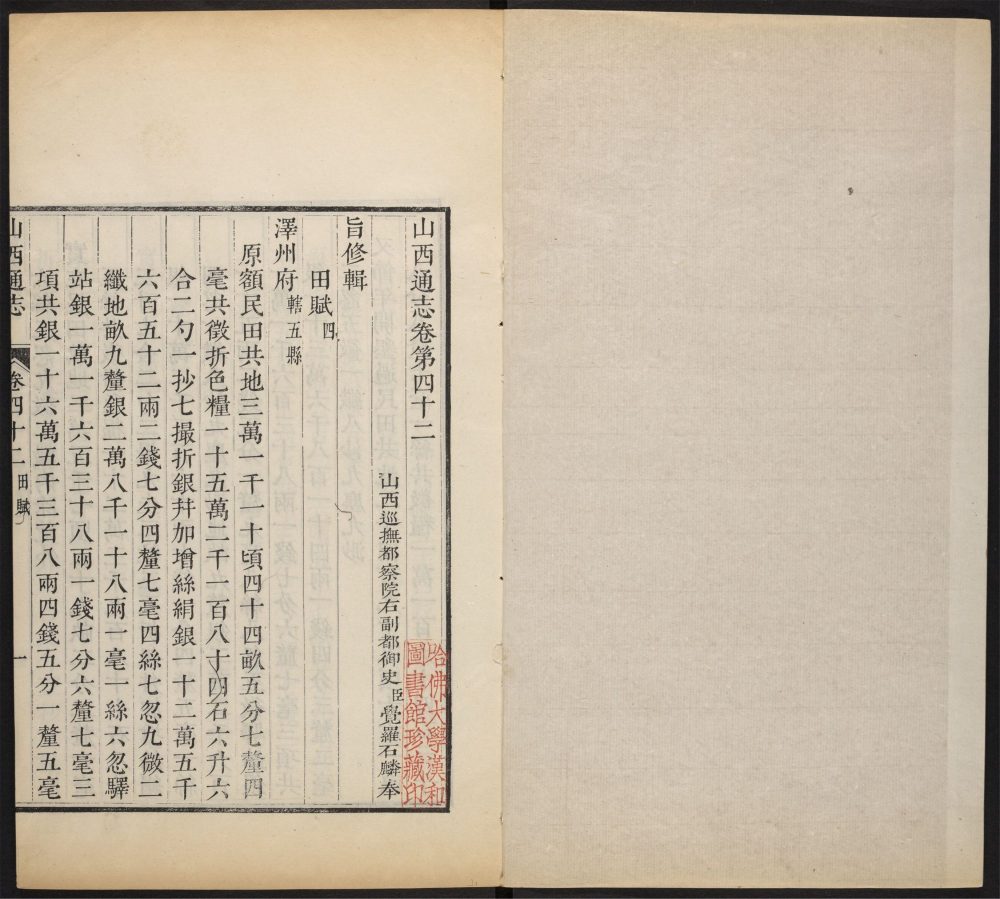 山西通志卷第四十二
山西巡撫都察院右副都御史臣覺羅石麟奉
旨修輯
田賦四
澤州府轄五縣
原額民田共地三萬一千一十頃四十四畝五分七釐四
毫共徵折色糧一十五萬二千一百八十四石六升六
合二勺一抄七撮折銀幷加增絲絹銀一十二萬五千
六百五十二兩二錢七分四釐七毫四絲七忽九微二
纖地畝九釐銀二萬八千一十八兩一毫一絲六忽驛
站銀一萬一千六百三十八兩一錢七分六釐七毫三
項共銀一十六萬五千三百八兩四錢五分一釐五毫
山西通志
卷四十二
田賦
一
哈佛大學漢和
圖書館珍藏印